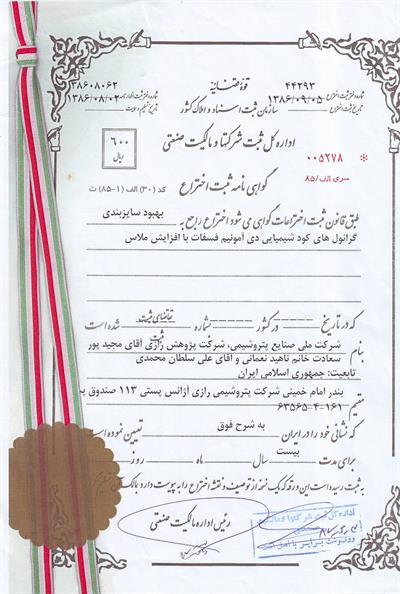 قوه قضائیه
۴۴۲۹۳
شماره دفتر ثبت اختراع
۱۳۸۶/۰۹/۰۵
تاریخ ثبت اختراع
۱۳۸۶۰۸۰۶۲
شماره دفتر ثبت اظهارنامه
۱۳۸۶/۰۸/۰۲
سازمان ثبت اسناد و املاک کشور
اداره کل ثبت شرکتها و مالکیت صنعتی
۶۰۰
ریال
۰۰۵۲۷۸ *
سری الف/۸۵
گواهی نامه ثبت اختراع
کد (۳۰) الف (۱-۸۵) ث
طبق قانون ثبت اختراعات گواهی می شود اختراع راجع به بهبود سایزبندی
گرانول های کود شیمیایی دی آمونیم فسفات با افزایش ملاس
که در تاریخ ------ در کشور ------ شماره ------ تقاضای ثبت شده است
ثبت
شرکت ملی صنایع پتروشیمی، شرکت پژوهش رازی آقای مجید پور
بنام سعادت خانم ناهید نعمانی و اقای علی سلطان محمدی
تابعیت: جمهوری اسلامی ایران
بندر امام خمینی شرکت پتروشیمی رازی آژانس پستی ۱۱۳ صندوق پ
مقیم ۶۳۵۶۵-۴-۱۶۱
که نشانی خود را در ایران به شرح فوق تعیین نموده است
برای مدت بیست سال ماه روز
به ثبت رسیده است این ورقه که یک نسخه از توصیف و نقشه اختراع را به پیوست دارد با
رئیس اداره مالکیت صنعتی
اداره کل ثبت شرکتها و مالکیت
رونوشت برابر با اصل است